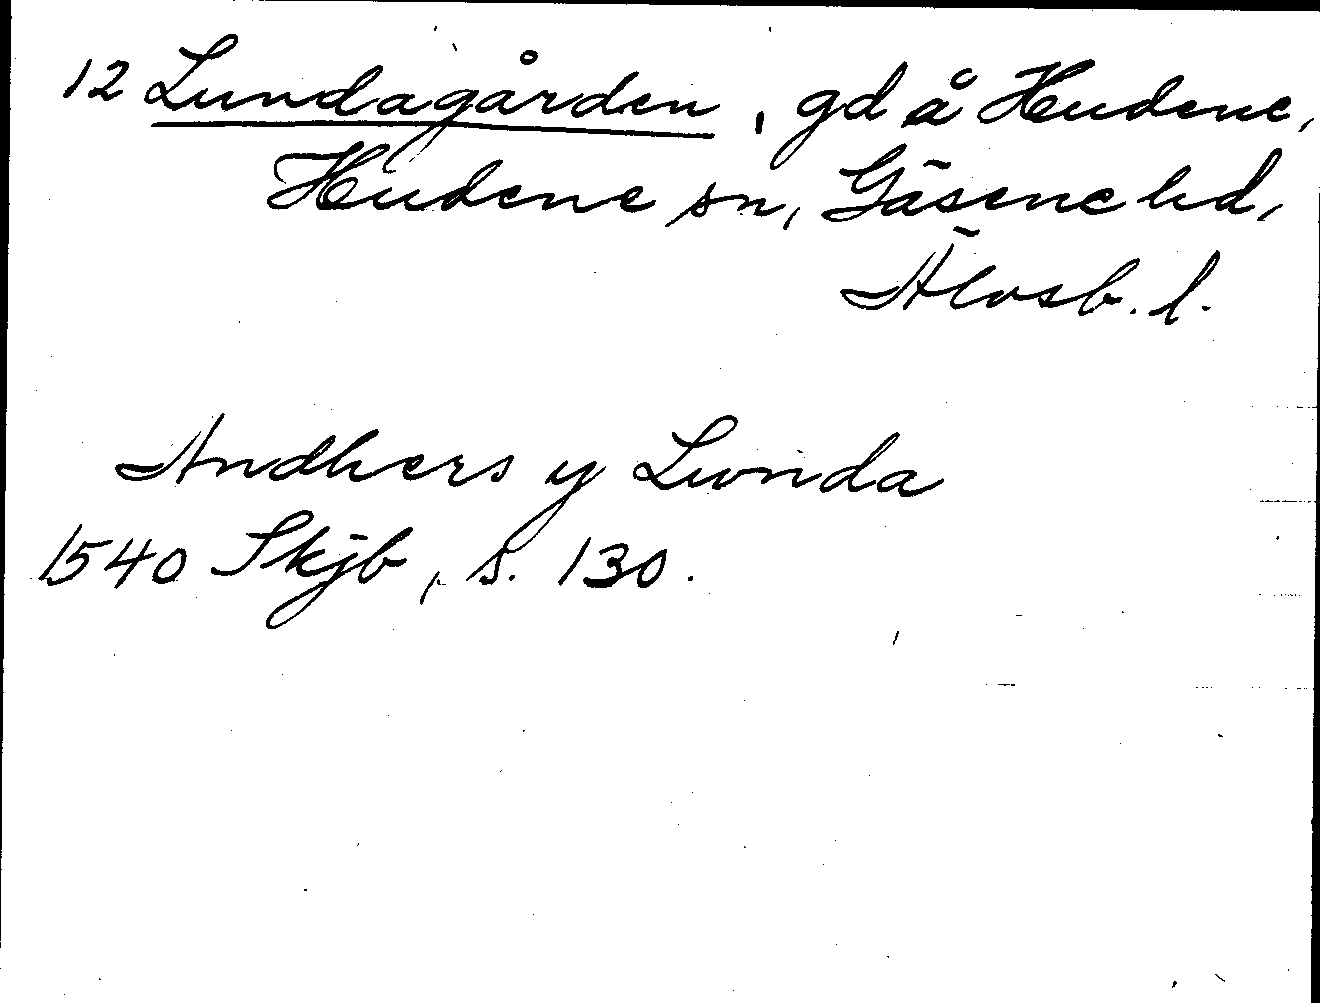 12 Lundagården, gd å Hudene,
Hudene sn, Gäsene hd,
Älvsb. l.
Andhers y Lunda
1540 Skjb, s. 130.